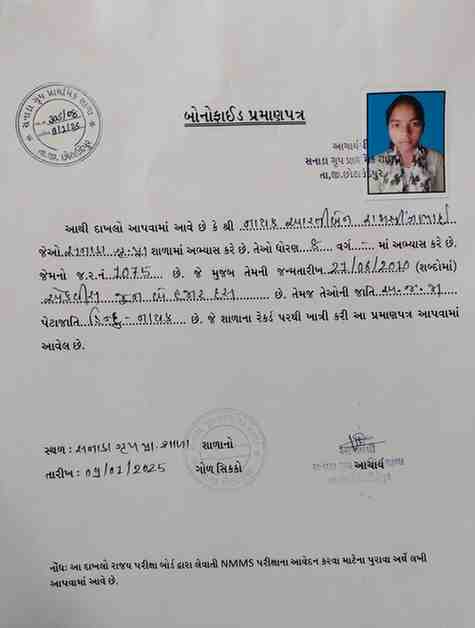 સનાડા ગૃપ પ્રાથમિક શાળા
તા.જી. છોટાઉદેપુર
બોનોફાઈડ પ્રમાણપત્ર
આચાર્યશ્રી
સનાડા ગૃપ પ્રાથમિક શાળા
તા.જી.છોટાઉદેપુર
આથી દાખલો આપવામાં આવે છે કે શ્રી નાયક આરતીબેન
જેઓ સનાડા ગૃ.પ્રા શાળામાં અભ્યાસ કરે છે. તેઓ ધોરણ 8 વર્ગ - માં અભ્યાસ કરે છે.
જેમનો જ.ર.નં. 1075 છે. જે મુજબ તેમની જન્મતારીખ 21/06/2010 (શબ્દોમાં)
એકવીસ જુન બે હજાર દસ છે. તેમજ તેઓની જાતિ અ.જ.જા
પેટાજાતિ હિન્દુ - નાયક છે. જે શાળાના રેકર્ડ પરથી ખાત્રી કરી આ પ્રમાણપત્ર આપવામાં
આવેલ છે.
સ્થળ : સનાડા ગૃપ પ્રા. શાળા શાળાનો
તારીખ : 09/01/2025 ગોળ સિક્કો
આચાર્ય
નોંધ: આ દાખલો રાજય પરીક્ષા બોર્ડ દ્વારા લેવાતી NMMS પરીક્ષાના આવેદન કરવા માટેના પુરાવા અર્થે લખી
આપવામાં આવે છે.